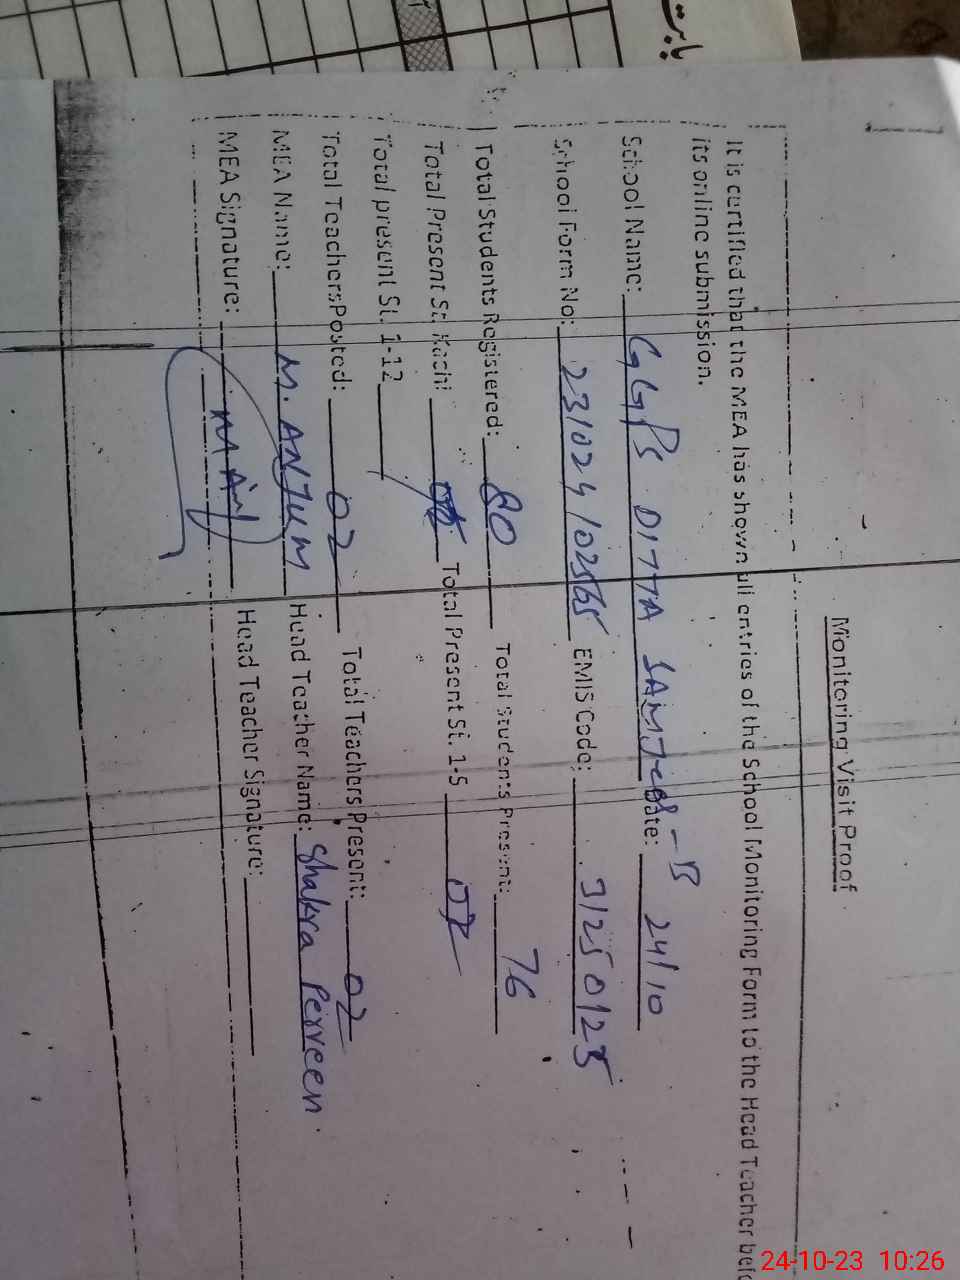 بابت
Monitoring Visit Proof
It is certified that the MEA has shown all entries of the School Monitoring Form to the Head Teacher before
its online submission.
School Name: GGPS DITTA - B Date: 24/10
School Form No: 231024102565 EMIS Code: 31250125
Total Students Registered: 80 Total Students Present: 76
Total Present St. Kachi Total Present St. 1-5
Total present St. 1-12
Total Teachers Posted: 02 Total Teachers Present: 02
MEA Name: M. ANJUM Head Teacher Name: Shakra Perveen
MEA Signature: Head Teacher Signature:
24-10-23 10:26